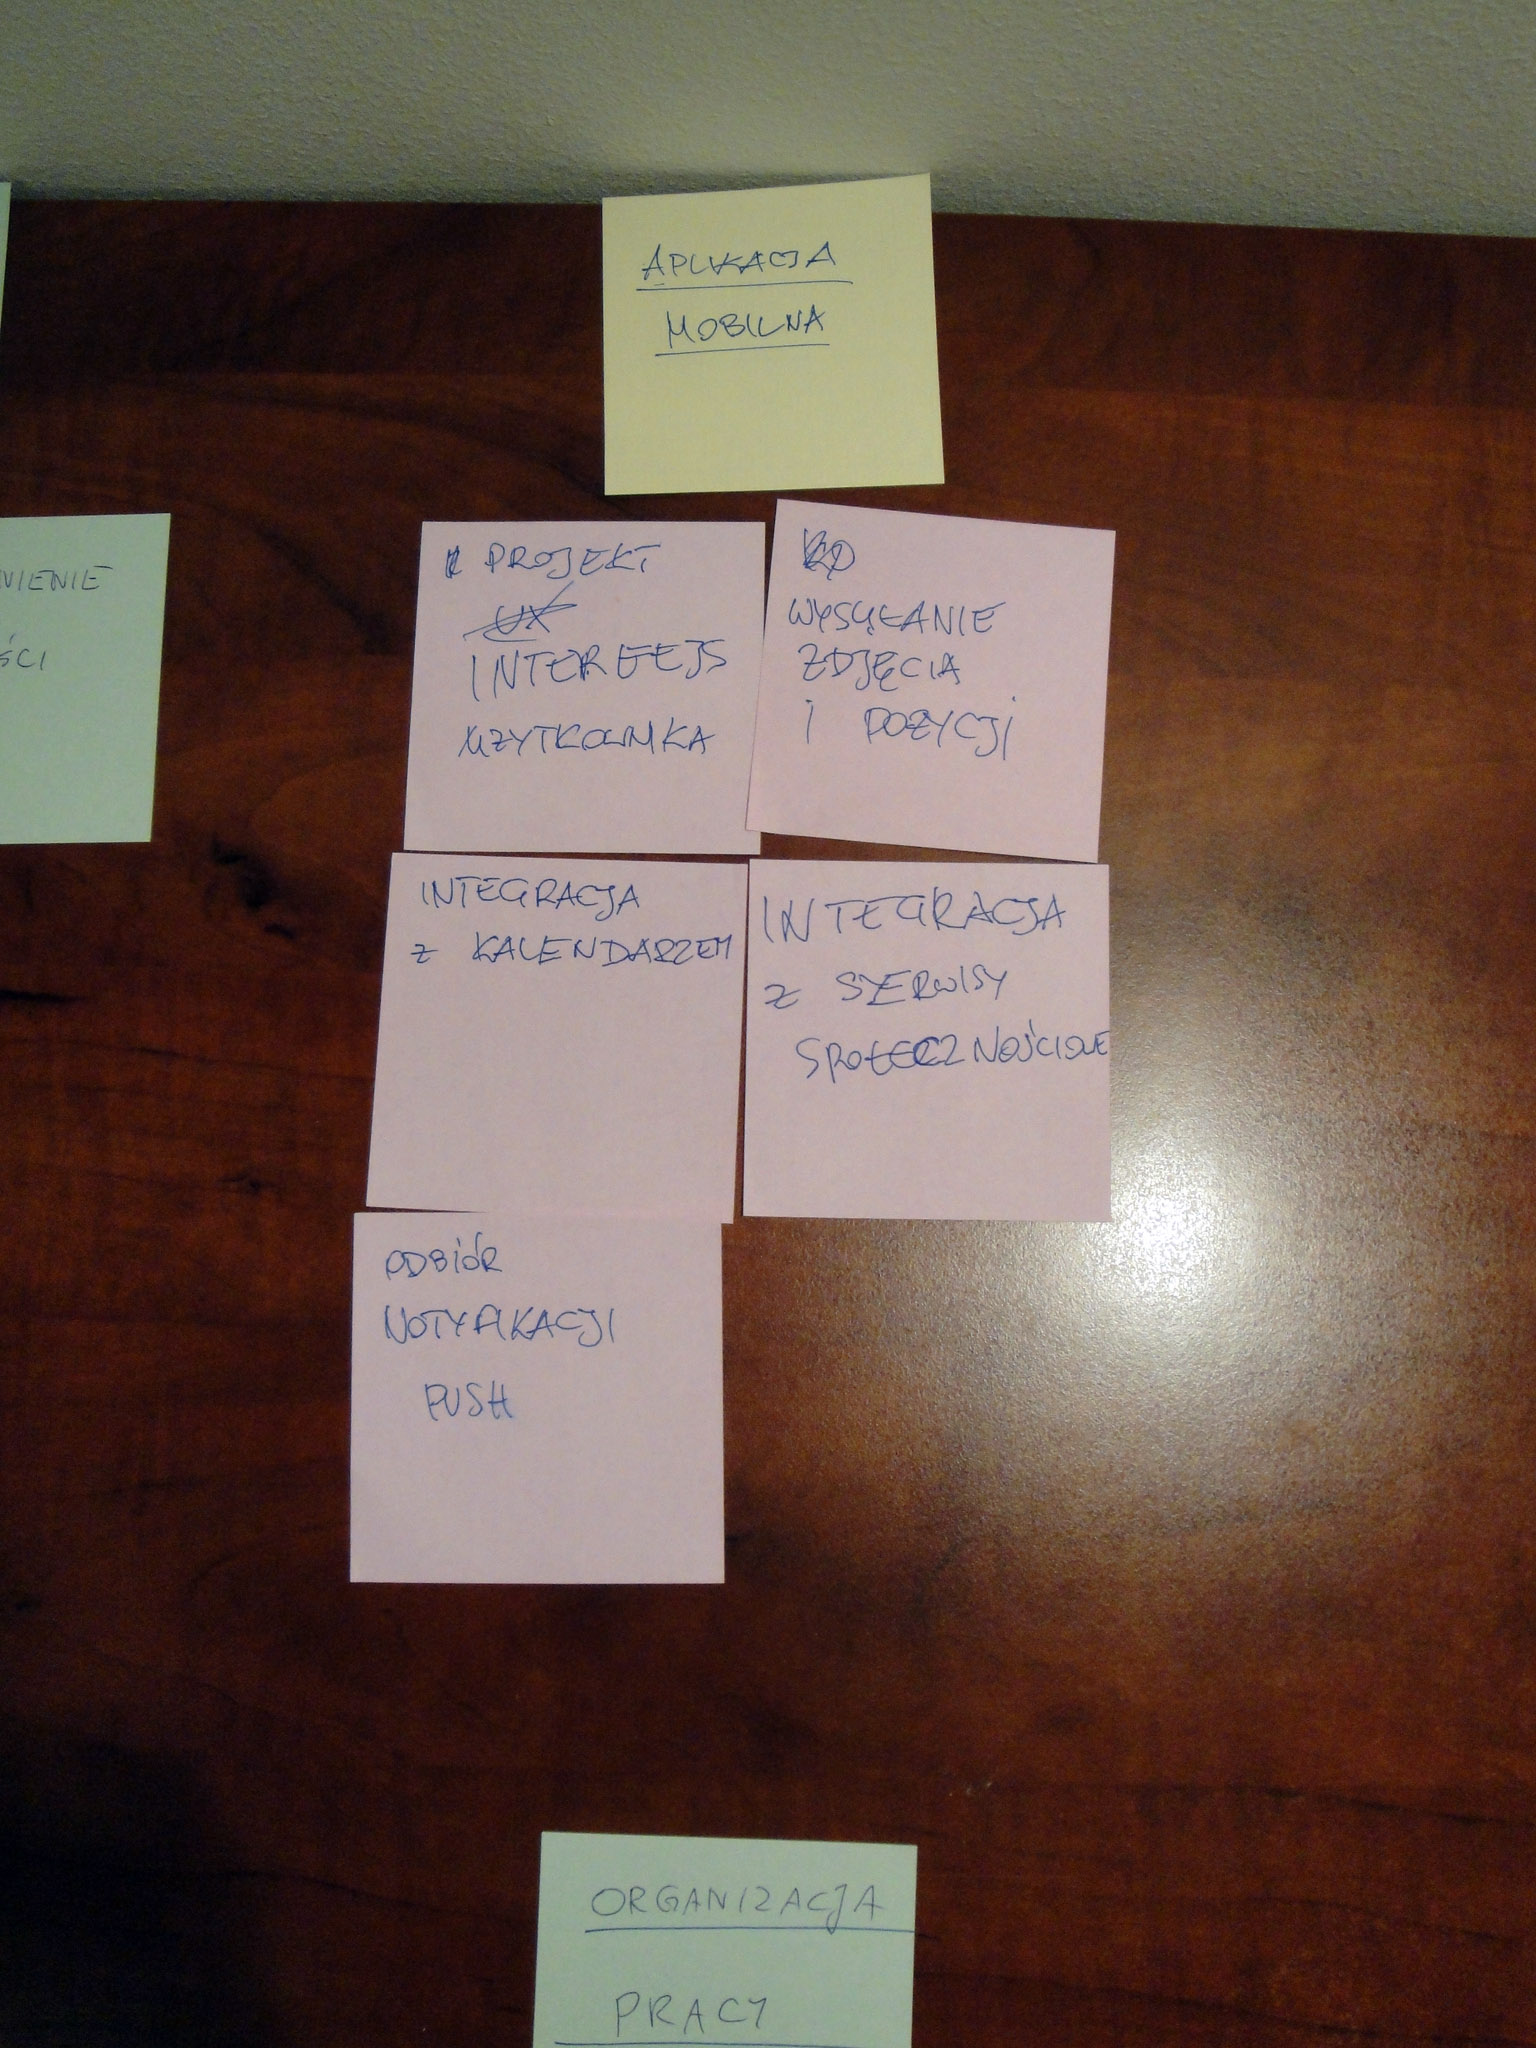 APLIKACJA
MOBILNA
NIENIE
ŚCI
PROJEKT
UX
INTERFEJS
UŻYTKOWNIKA
WYSYŁANIE
ZDJĘCIA
I POZYCJI
INTEGRACJA
Z KALENDARZEM
INTEGRACJA
Z SERWISY
SPOŁECZNOŚCIOWE
ODBIÓR
NOTYFIKACJI
PUSH
ORGANIZACJA
PRACY